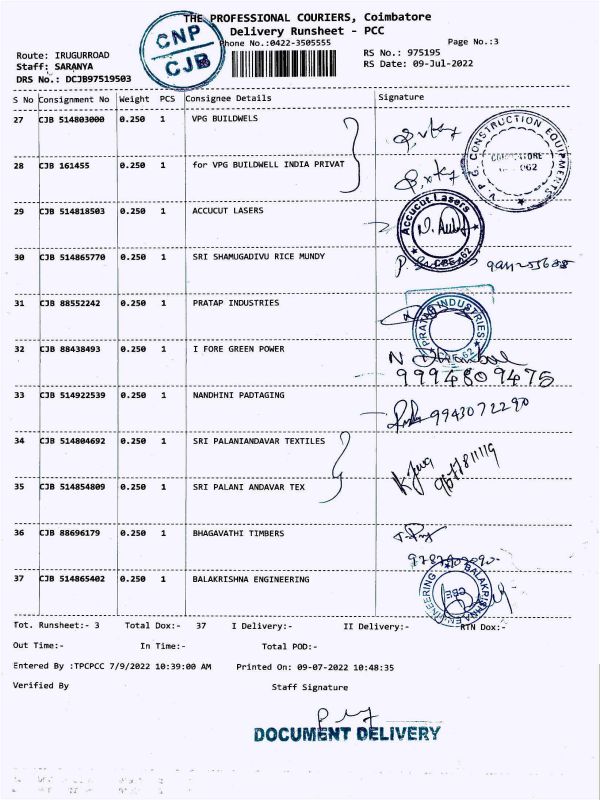 THE PROFESSIONAL COURIERS, Coimbatore
Delivery Runsheet - PCC
Phone No.:0422-3505555
Page No.:3
CNP
CJB
Route: IRUGURROAD
Staff: SARANYA
DRS No.: DCJB97519503
RS No.: 975195
RS Date: 09-Jul-2022
S No Consignment No Weight PCS Consignee Details Signature
27 CJB 514803000 0.250 1 VPG BUILDWELS
28 CJB 161455 0.250 1 for VPG BUILDWELL INDIA PRIVAT
V.P.G. CONSTRUCTION EQUIPMENTS
29 CJB 514818503 0.250 1 ACCUCUT LASERS
Accucut Lasers
CBE-62
30 CJB 514865770 0.250 1 SRI SHAMUGADIVU RICE MUNDY
31 CJB 88552242 0.250 1 PRATAP INDUSTRIES
PRATAP INDUSTRIES
32 CJB 88438493 0.250 1 I FORE GREEN POWER
9994809475
33 CJB 514922539 0.250 1 NANDHINI PADTAGING
9943072290
34 CJB 514804692 0.250 1 SRI PALANIANDAVAR TEXTILES
35 CJB 514854809 0.250 1 SRI PALANI ANDAVAR TEX
36 CJB 88696179 0.250 1 BHAGAVATHI TIMBERS
37 CJB 514865402 0.250 1 BALAKRISHNA ENGINEERING
BALAKRISHNA ENGINEERING
CBE
Tot. Runsheet:- 3 Total Dox:- 37 I Delivery:- II Delivery:- RTN Dox:-
Out Time:- In Time:- Total POD:-
Entered By :TPCPCC 7/9/2022 10:39:00 AM Printed On: 09-07-2022 10:48:35
Verified By Staff Signature
DOCUMENT DELIVERY